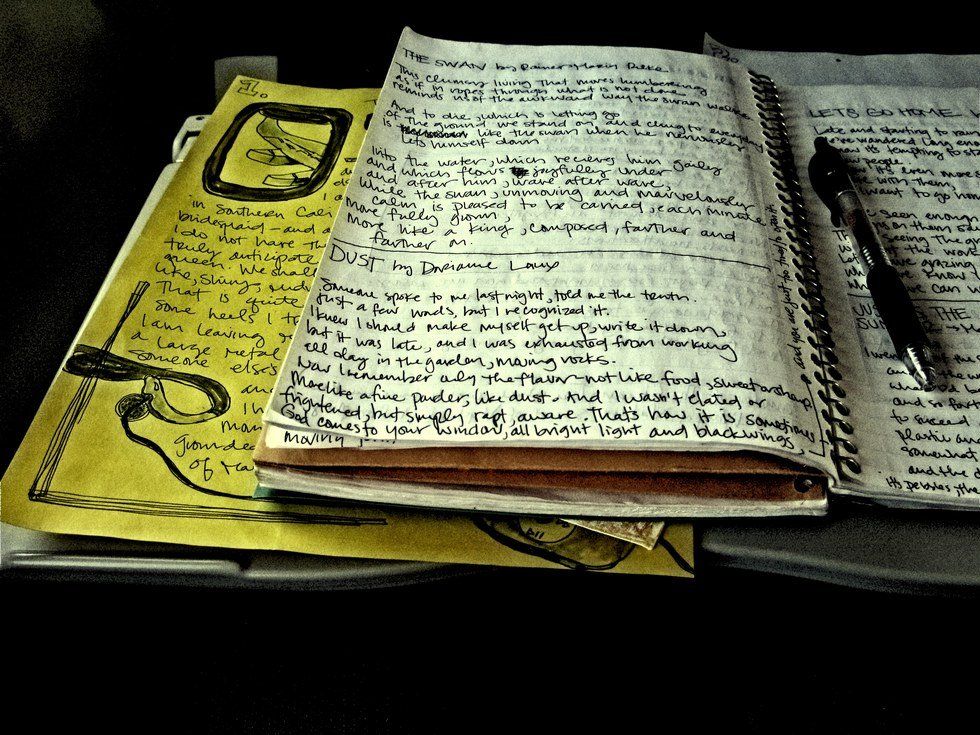 in Southern Cali
bridesmaid - and a
I do not have th
truly anticipate
queen. We shall
like, shiny, and
That is quite
some heels I t
I am leaving
a large metal
someone else's
and
I h
of
THE SWAN by Rainer Maria Rilke
This clumsy living that moves lumbering
as if in ropes through what is not done
reminds us of the awkward way the swan walks
And to die, which is letting go
of the ground we stand on and cling to everyday
is like the swan when he nervously
lets himself down
Into the water, which receives him gaily
and which flows joyfully under
and after him, wave after wave,
while the swan, unmoving and marvelously
calm, is pleased to be carried, each minute
more fully grown,
more like a king, composed, farther and
farther on.
DUST by Dorianne Laux
Someone spoke to me last night, told me the truth.
Just a few words, but I recognized it.
I knew I should make myself get up, write it down,
but it was late, and I was exhausted from working
all day in the garden, moving rocks.
Now I remember only the flavor - not like food, sweet or sharp
More like a fine powder, like dust. And I wasn't elated or
frightened, but simply rapt, aware. That's how it is sometimes
God comes to your window, all bright light and black wings,
and you're just too tired to open it
LET'S GO HOME
Late and starting to rain
we've wandered long en
it's tempting to sta
people.
it's even more
them,
want to go ho
seen enoug
seeing the
we can w
THE
and so far
to succeed
plastic and
somewhat
and the
its pebbles, the